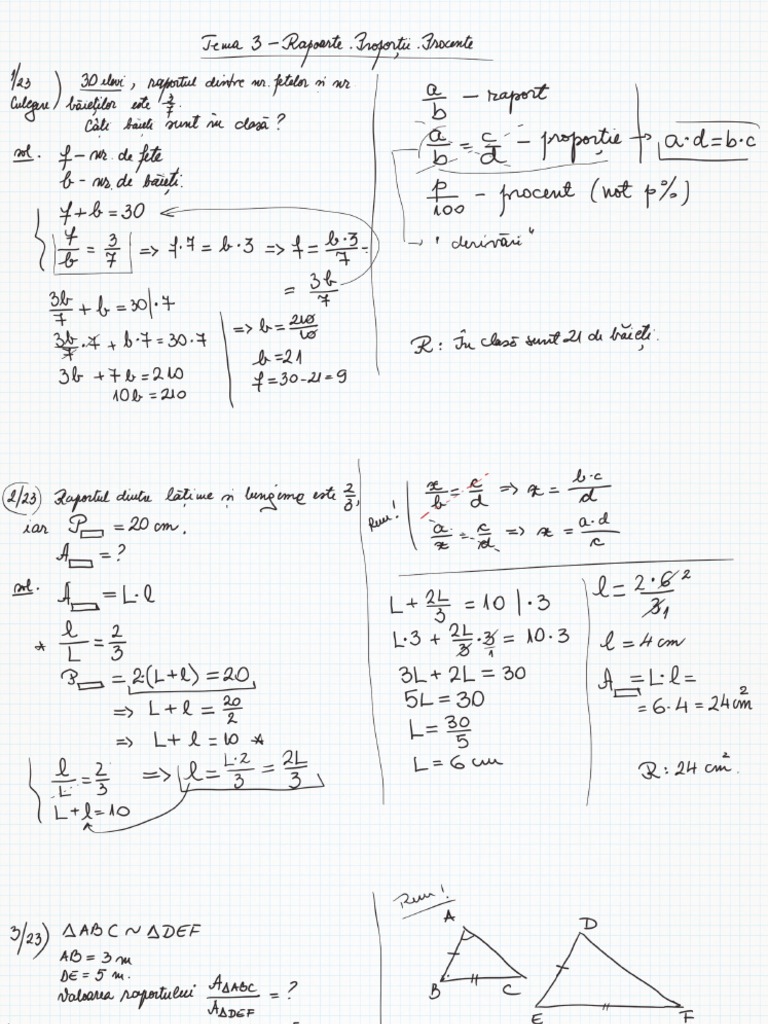 Tema 3 - Rapoarte. Proporții. Procente
1/23 Culegere) 30 elevi, raportul dintre nr. fetelor și nr.
băieților este 3/7.
Câți băieți sunt în clasă?
sol. f - nr. de fete
b - nr. de băieți.
f + b = 30
f/b = 3/7 => f·7 = b·3 => f = b·3/7 =
= 3b/7
3b/7 + b = 30 |·7
3b/7·7 + b·7 = 30·7
3b + 7b = 210
10b = 210
=> b = 210/10
b = 21
f = 30-21 = 9
a/b - raport
a/b = c/d - proporție → a·d = b·c
p/100 - procent (not p%)
→ "derivări"
R: În clasă sunt 21 de băieți.
2/23) Raportul dintre lățime și lungime este 2/3,
iar P▭ = 20 cm.
A▭ = ?
sol. A▭ = L·l
* l/L = 2/3
P▭ = 2·(L+l) = 20
=> L + l = 20/2
=> L + l = 10 *
l/L = 2/3 => l = L·2/3 = 2L/3
L + l = 10
Rem! x/b = c/d => x = b·c/d
a/x = c/d => x = a·d/c
L + 2L/3 = 10 |·3
L·3 + 2L/3·3/1 = 10·3
3L + 2L = 30
5L = 30
L = 30/5
L = 6 cm
l = 2·6²/3₁
l = 4 cm
A▭ = L·l =
= 6·4 = 24 cm²
R: 24 cm².
3/23) ΔABC ~ ΔDEF
AB = 3 m
DE = 5 m.
Valoarea raportului AΔABC/AΔDEF = ?
Rem!
A
B
C
D
E
F